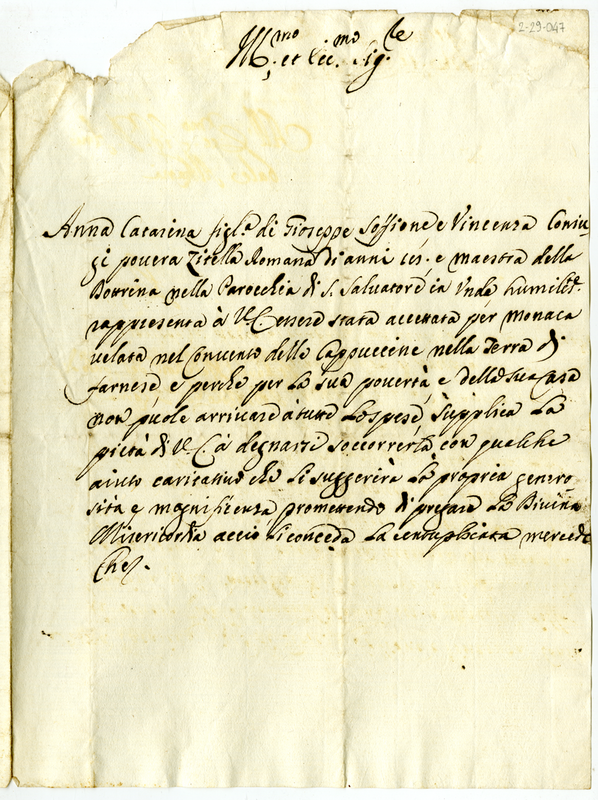 2-29-047
Ill.mo et Ecc.mo Sig.re
Anna Catarina figl.a di Gioseppe Soffione e Vincenza Coniu-
gi povera Zitella Romana di anni 16. e maestra della
Dottrina nella Parocchia di S. Salvatore in Unda humilm.te
rappresenta à V.E. essere stata accettata per monaca
velata nel Convento delle Cappuccine nella Terra di
Farnese, e perche per la sua povertà e della sua Casa
non puole arrivare à tutte le spese, supplica la
pietà di V.E. à degnarsi soccorrerla con qualche
aiuto caritativo che li suggerirà la propria genero
sità e magnificenza promettendo di pregare la Divina
Misericordia accio li conceda la centuplicata mercede
Che